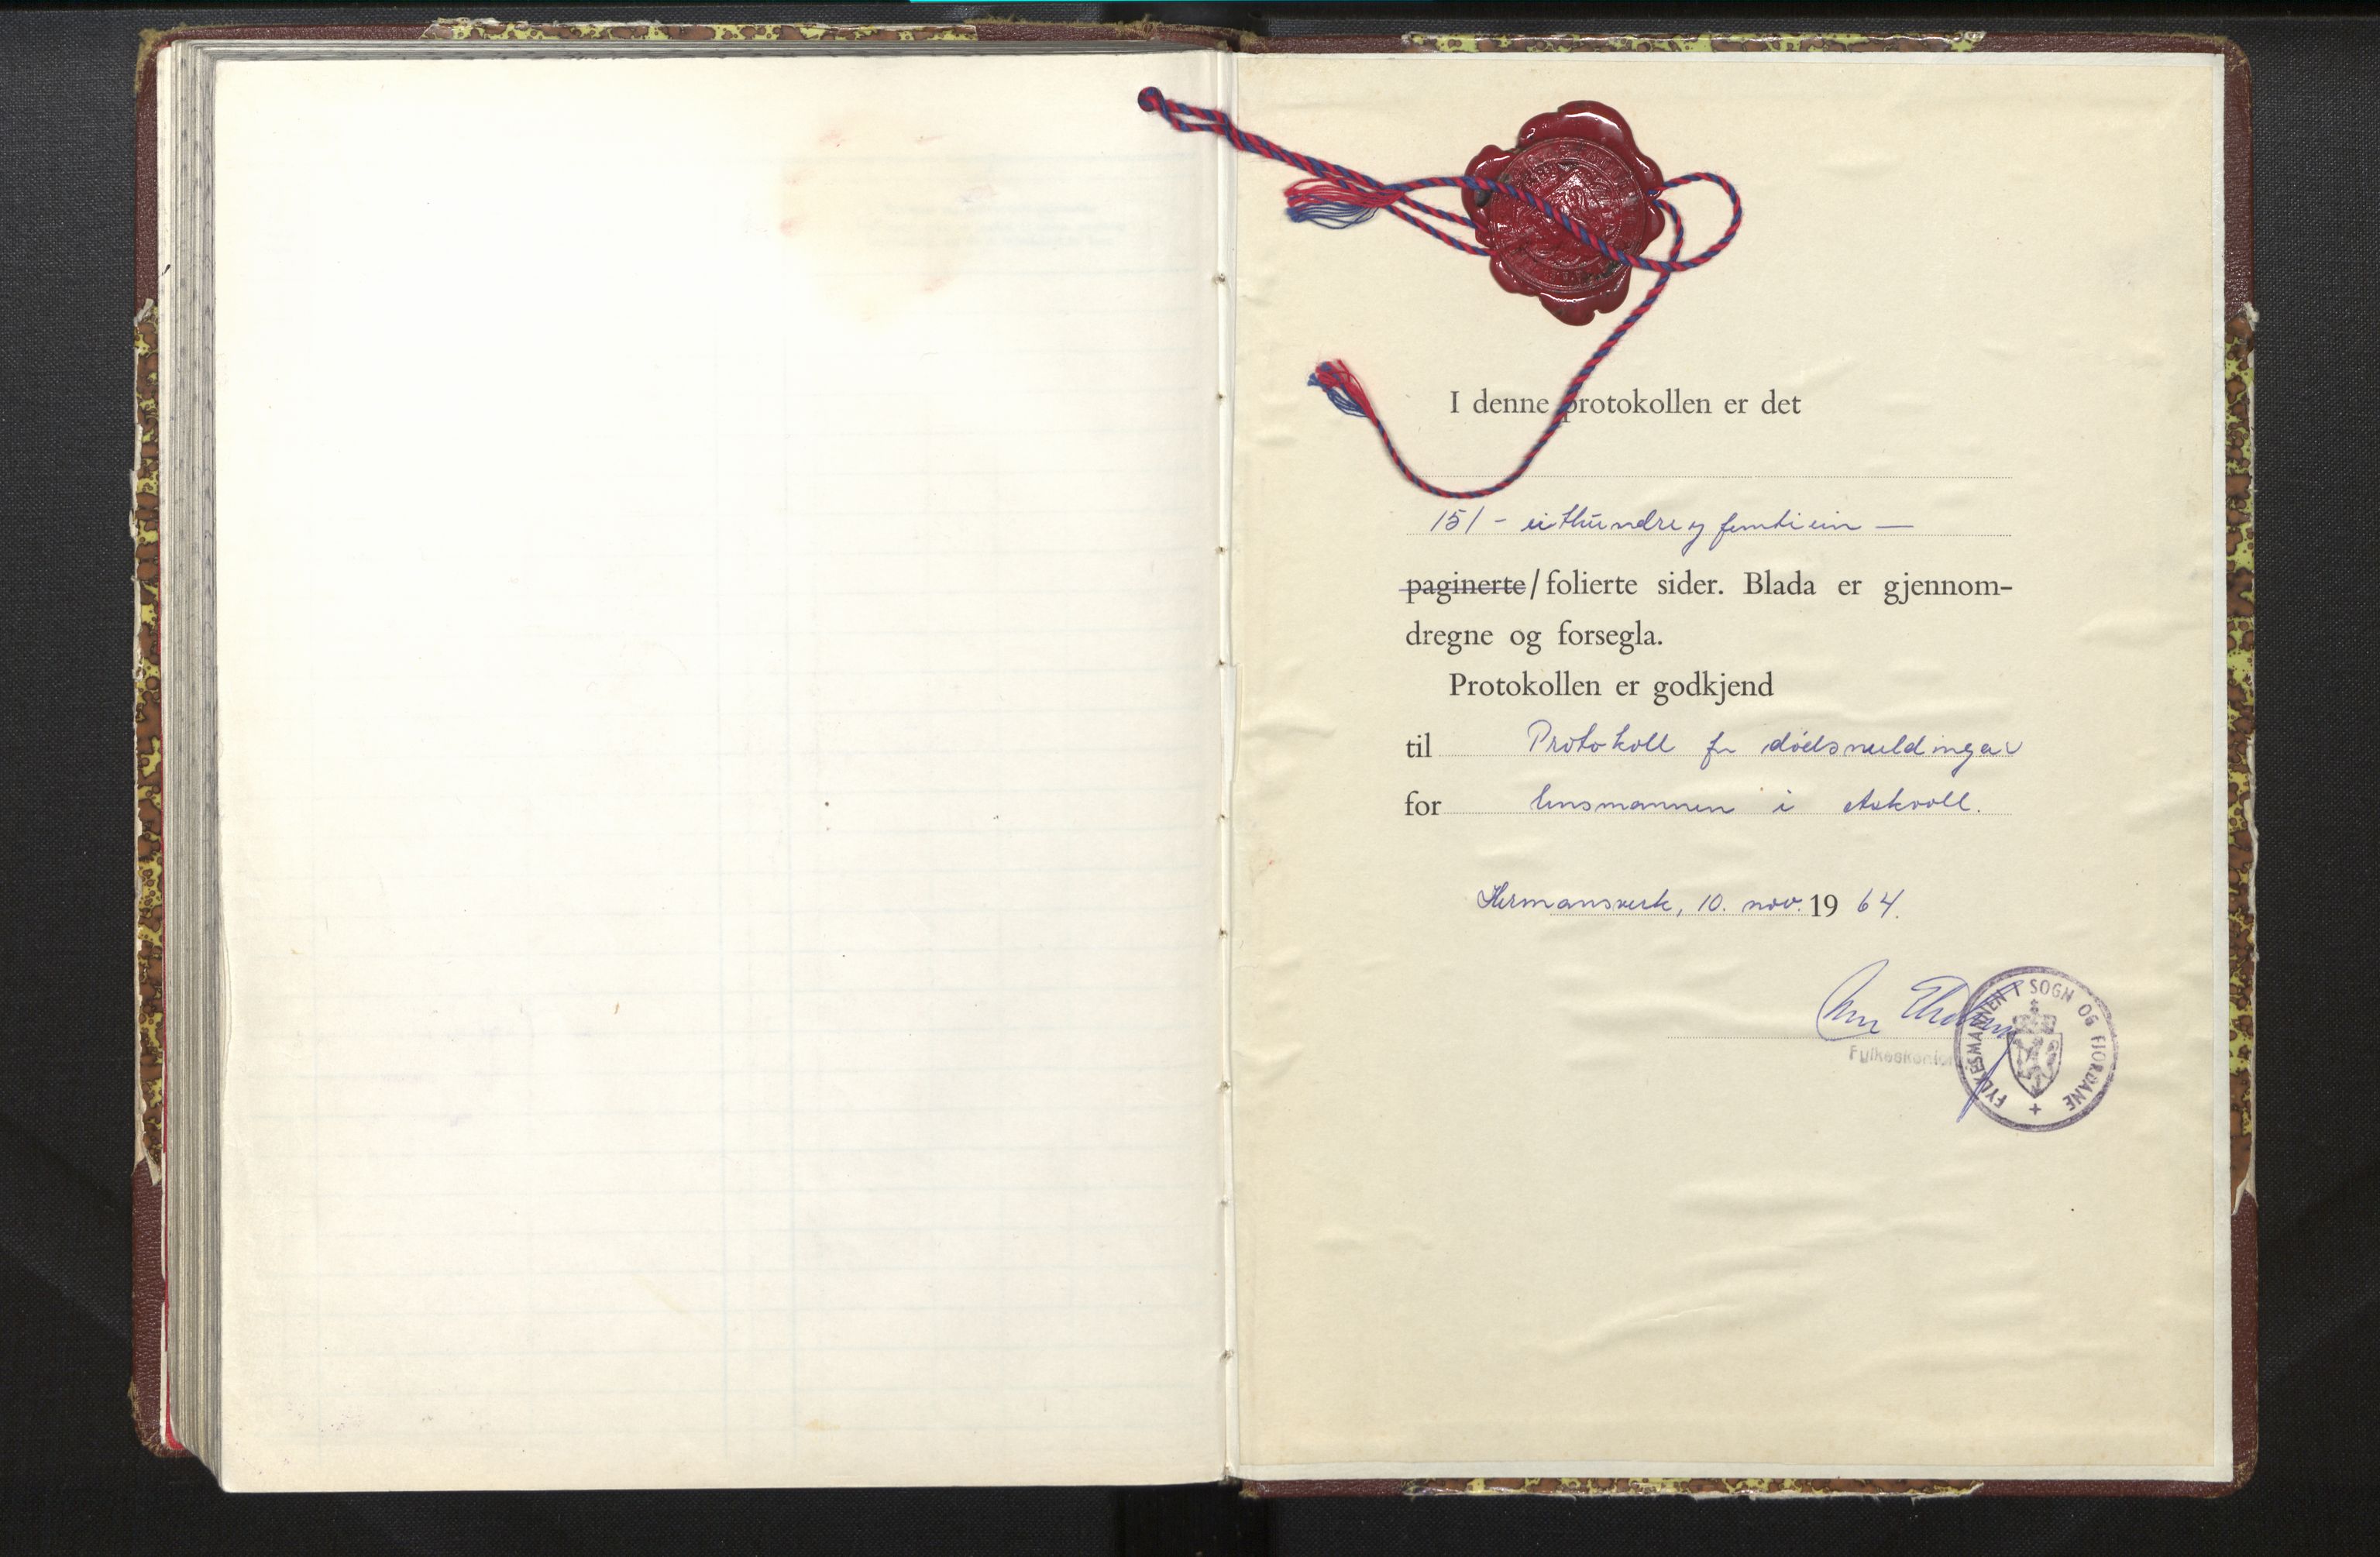 I denne protokollen er det
151 - eitthundre og femtiein —
paginerte/folierte sider. Blada er gjennom-
dregne og forsegla.
Protokollen er godkjend
til Protokoll for dødsmeldingar
for lensmannen i Askvoll.
Hermansverk, 10. nov. 19 64.
FYLKESMANNEN I SOGN OG FJORDANE